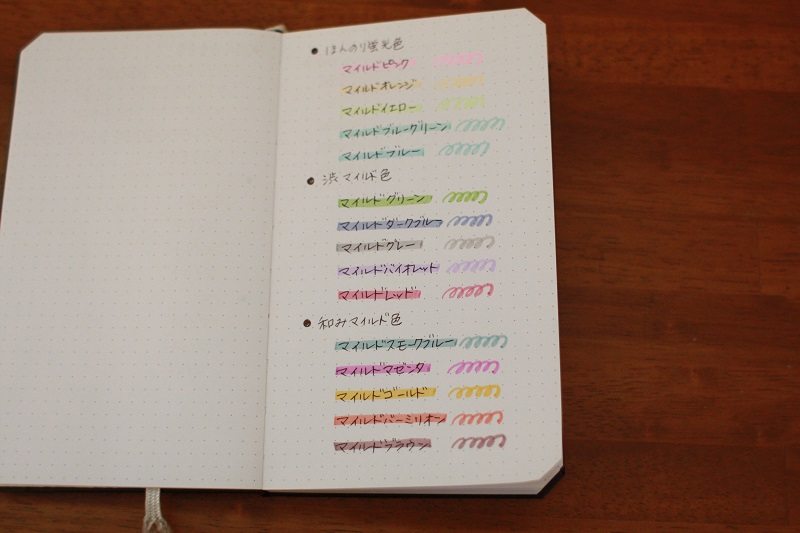 ● ほんのり蛍光色
マイルドピンク
マイルドオレンジ
マイルドイエロー
マイルドブルーグリーン
マイルドブルー
● 渋マイルド色
マイルドグリーン
マイルドダークブルー
マイルドグレー
マイルドバイオレット
マイルドレッド
● 和みマイルド色
マイルドスモークブルー
マイルドマゼンタ
マイルドゴールド
マイルドバーミリオン
マイルドブラウン